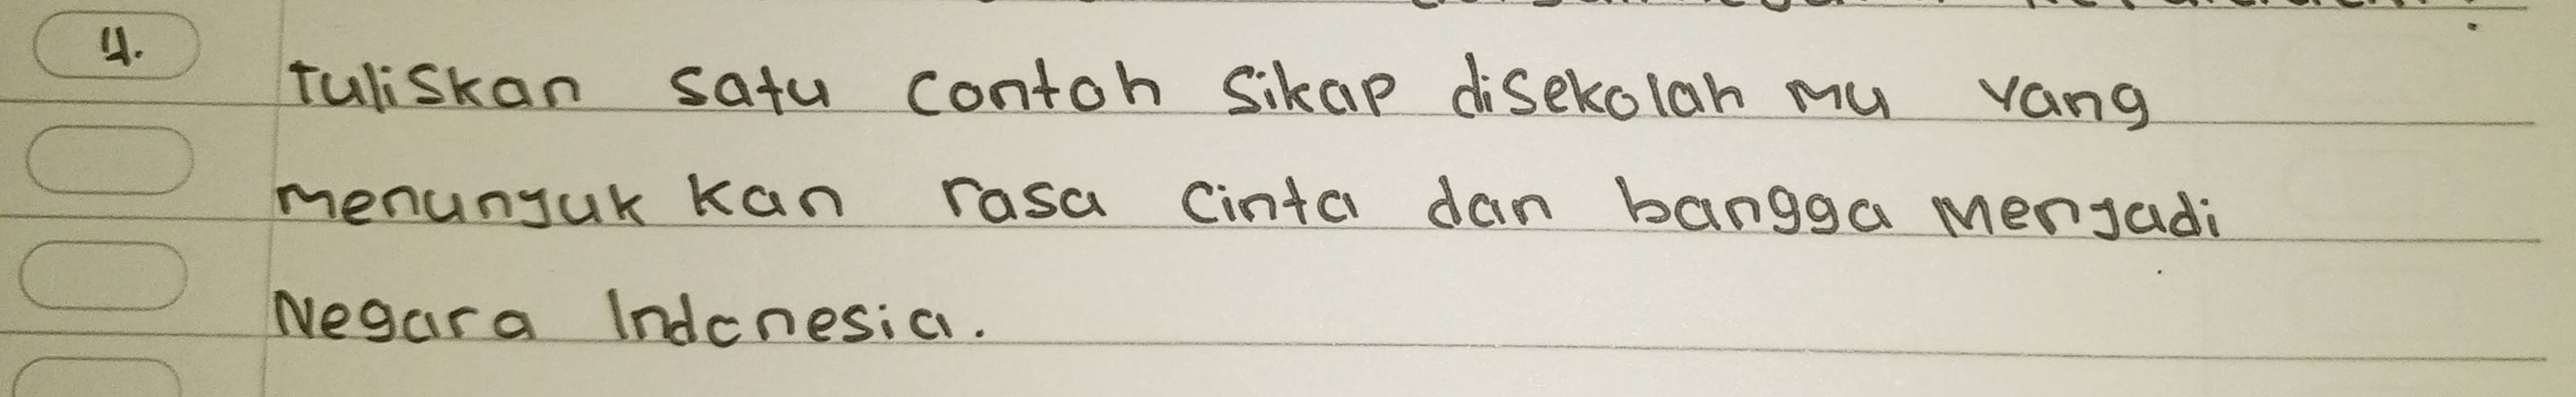 4. Tuliskan satu contoh sikap disekolah mu yang
menunjuk kan rasa cinta dan bangga menjadi
Negara Indonesia.